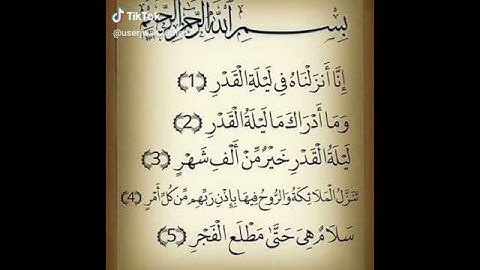 TikTok
بِسْمِ اللَّهِ الرَّحْمَٰنِ الرَّحِيمِ
إِنَّا أَنزَلْنَاهُ فِي لَيْلَةِ الْقَدْرِ (1)
وَمَا أَدْرَاكَ مَا لَيْلَةُ الْقَدْرِ (2)
لَيْلَةُ الْقَدْرِ خَيْرٌ مِّنْ أَلْفِ شَهْرٍ (3)
تَنَزَّلُ الْمَلَائِكَةُ وَالرُّوحُ فِيهَا بِإِذْنِ رَبِّهِم مِّن كُلِّ أَمْرٍ (4)
سَلَامٌ هِيَ حَتَّىٰ مَطْلَعِ الْفَجْرِ (5)